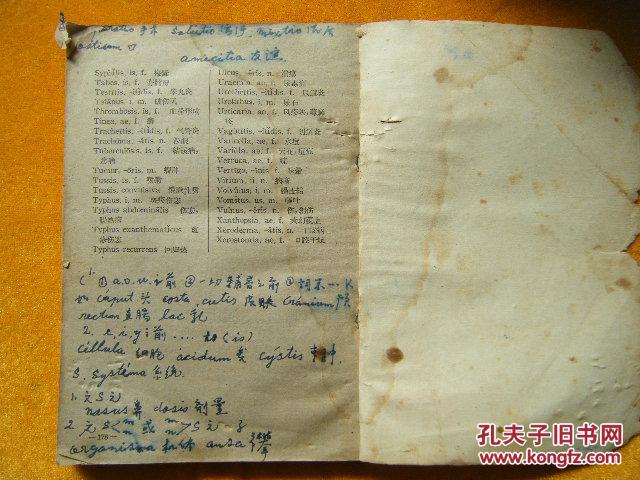 operatio 手术 solutio 溶液 mixtio
amicitia 友谊
Syphilis, is, f. 梅毒
Tabes, is, f.
Testitis, -itidis, f. 睾丸炎
Tetanus, i, m. 破伤风
Thrombosis, is, f. 血栓形成
Tinea, ae, f. 癣
Tracheitis, -itidis, f. 气管炎
Trachoma, -atis, n. 沙眼
Tuberculosis, is, f. 结核病,
Tumor, -oris, m.
Tussis, is, f. 咳嗽
Tussis, convulsiva
Typhus, i, m. 斑疹伤寒
Typhus abdominalis 伤寒,
Typhus exanthematicus 斑
疹伤寒
Typhus recurrens 回归热
Ulcus, -eris, n. 溃疡
Uraemia, ae, f. 尿毒症
Urethritis, -itidis, f. 尿道炎
Urolithus, i, m. 尿石
Urticaria, ae, f. 风疹块, 荨麻
疹
Vaginitis, -itidis, f. 阴道炎
Varicella, ae, f. 水痘
Variola, ae, f. 天花, 痘疮
Verruca, ae, f. 疣
Vertigo, -inis, f. 眩晕
Vitium, ii, n.
Volvulus, i, m. 肠扭结
Vomitus, us, m. 呕吐
Vulnus, -eris, n. 伤, 创伤
Xanthopsia, ae, f. 黄幻视症
Xeroderma, -atis, n. 干皮病
Xerostomia, ae, f. 口腔干燥
C 1. ① a.o.u.j 前 ② 一切辅音之前 ③ 词末 … K
如 cáput 头 costa, cutis 皮肤 Cránium 颅
rectum 直肠 lac 乳
2. e, i, y, j 前 .... (is)
céllula 细胞 ácidum 酸 cýstis
S. systéma 系统.
1. 元 S 元
nasus 鼻 dosis 剂量
2. 元 S < m n 或 m n > S 元
organismus 机体 ansa
—178—
孔夫子旧书网
www.kongfz.com